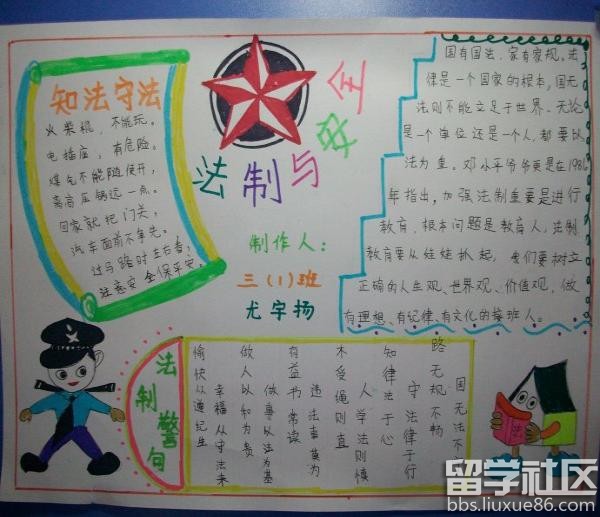 知法守法
火柴棍,不能玩。
电插座,有危险。
煤气不能随便开,
离高压锅远一点。
回家就把门关,
汽车面前不争先。
过马路时左右看,
注意安全保平安。
法制与安全
制作人:
三(1)班
尤宇扬
国有国法,家有家规。法
律是一个国家的根本,国无
法则不能立足于世界.无论
是一个单位还是一个人,都要以
法为重。邓小平爷爷更是在1986
年指出,加强法制重要是进行
教育,根本问题是教育人,法制
教育要从娃娃抓起,我们要树立
正确的人生观、世界观、价值观,做
有理想、有纪律、有文化的接班人。
法制警句
国无法不
路无规不畅
守法律于行
知律法于心
人学法则慎
木受绳则直
违法事莫为
有益书常读
做事以法为基
做人以和为贵
幸福从守法来
愉快从遵纪生
留学社区
bbs.liuxue86.com